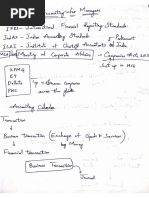 Accounting for Managers
IFRS - International Financial Reporting Standards
IndAS - Indian Accounting Standards
ICAI - Institute of Chartered Accountants of India
Ministry of Corporate Affairs - Companies Act 2013
Set up in
KPMG
EY
Deloitte
PWC
Top 4 finance companies
across the globe
Accounting Calendar
Transaction
↓
Business Transaction (Exchange of Goods & Services)
by Money
↓
Financial Transaction
Business Transaction